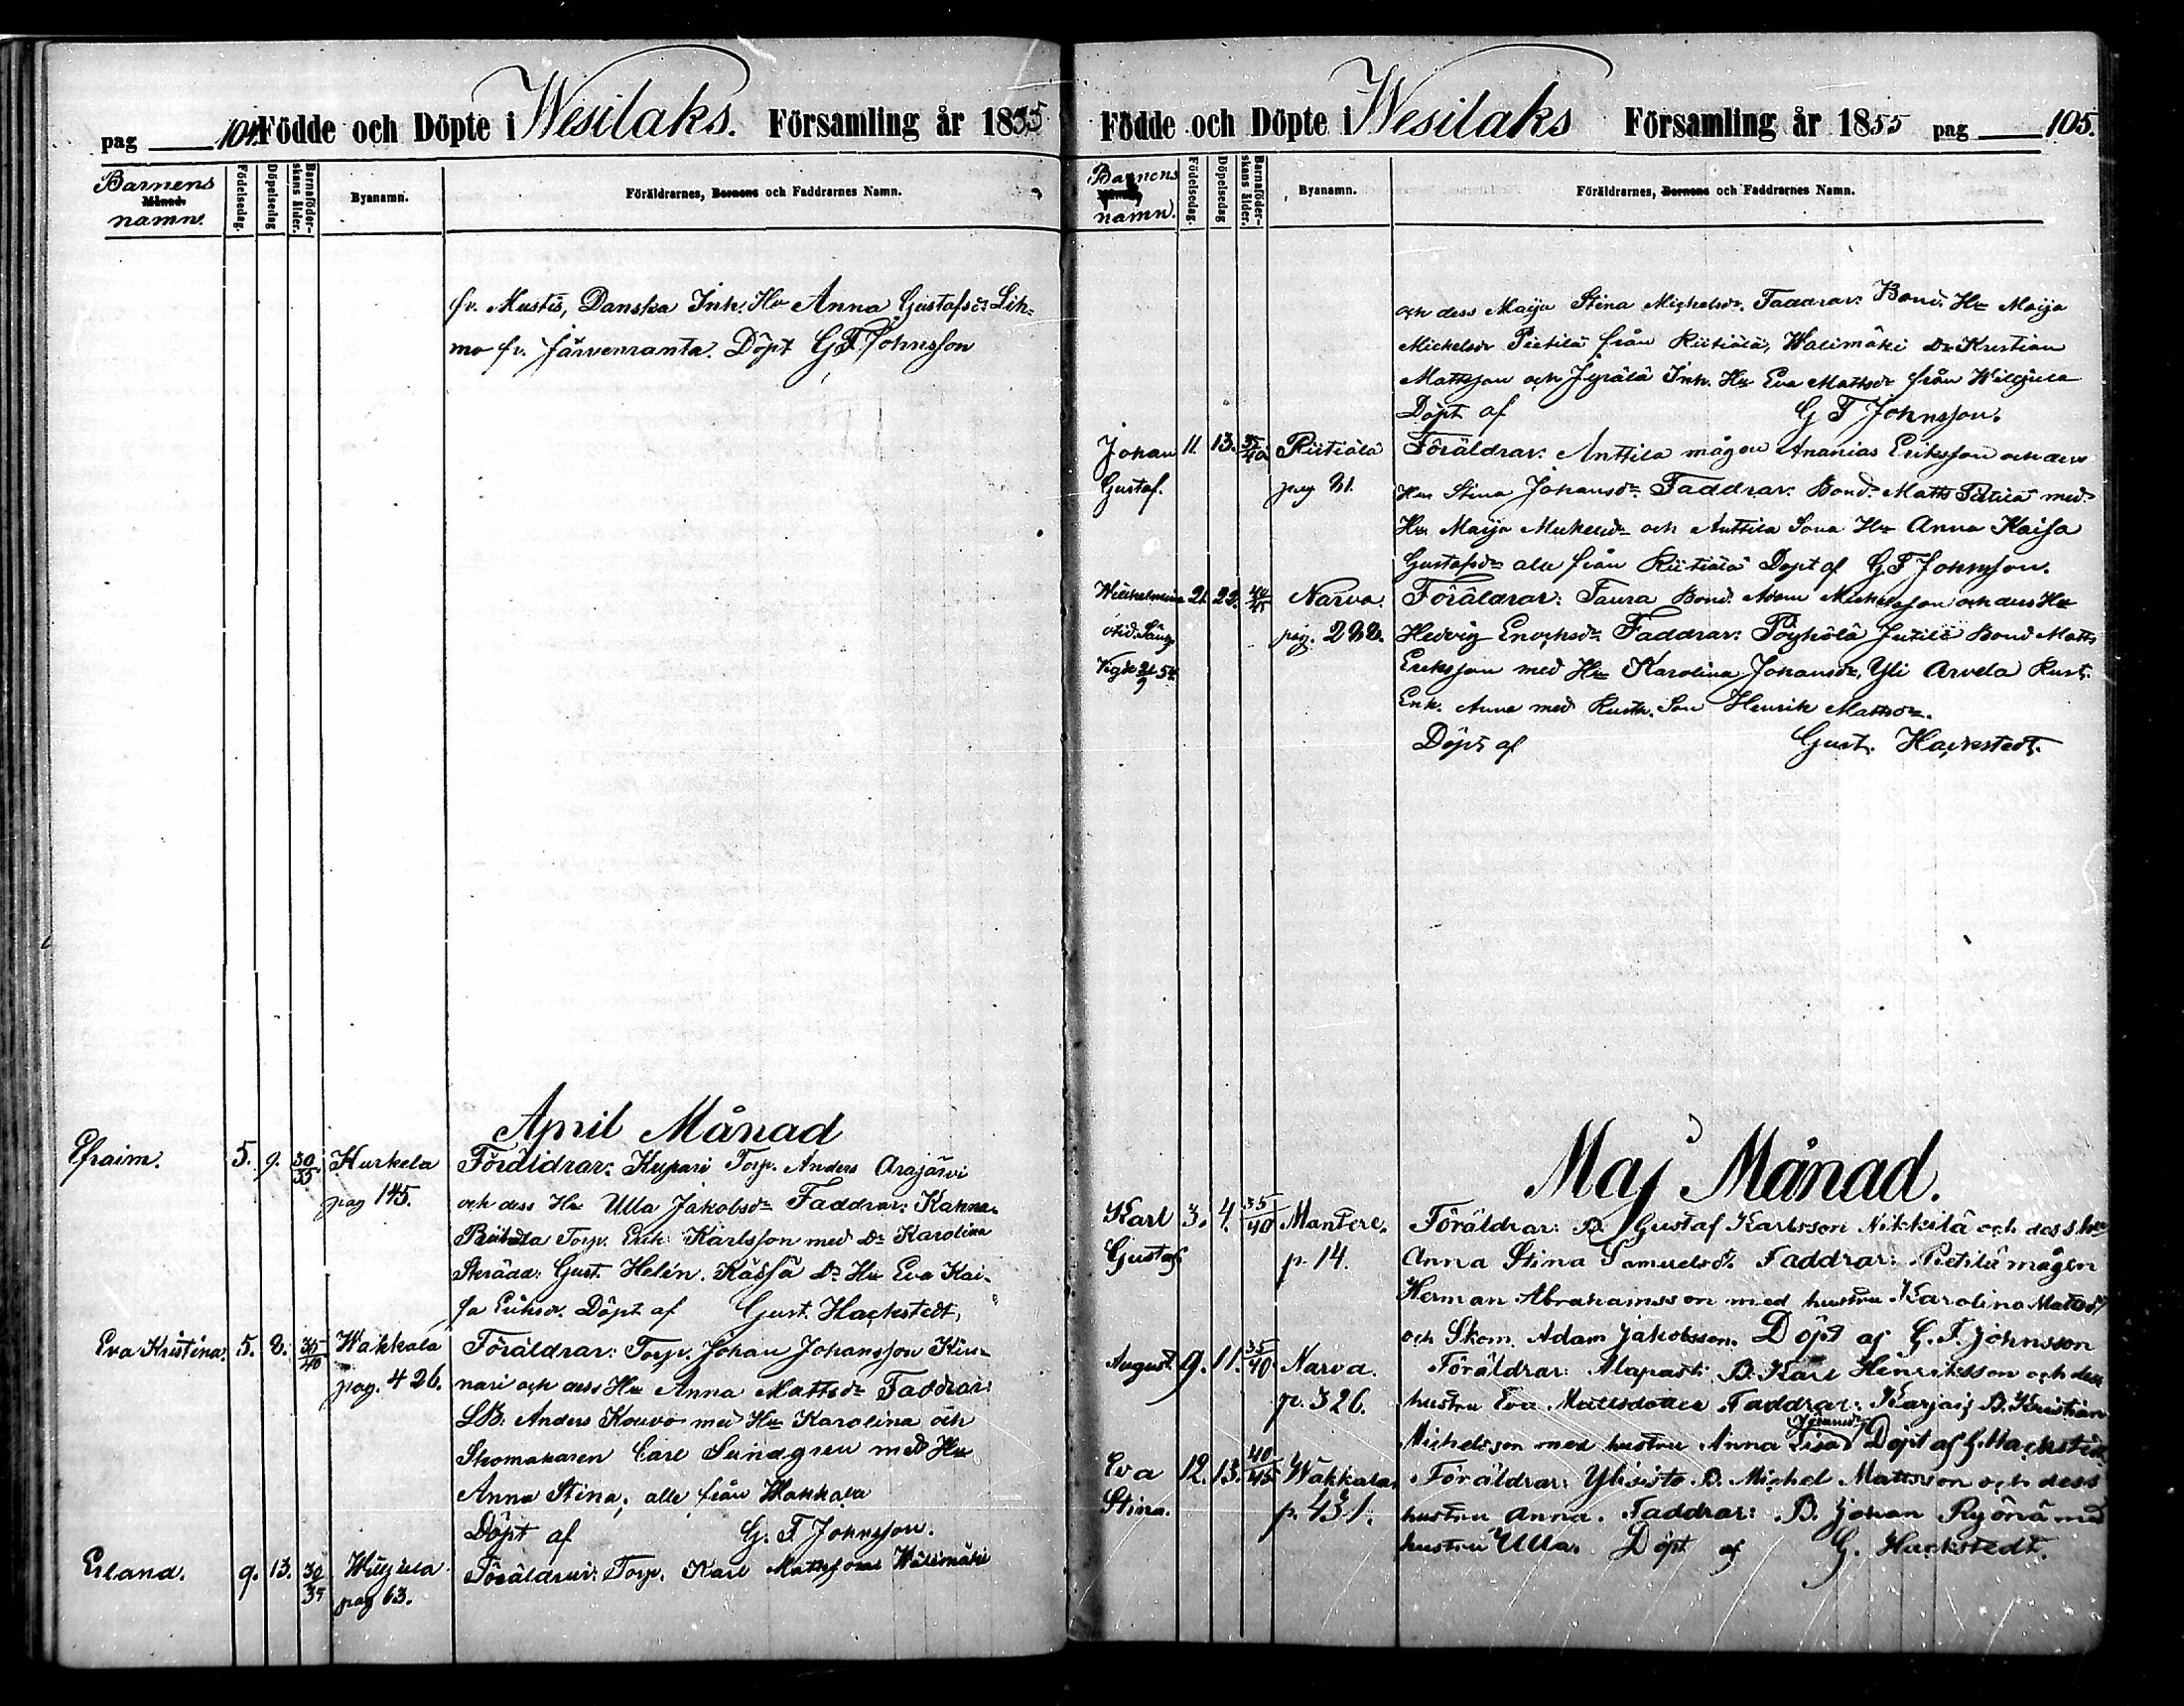 pag 104. Födde och Döpte i Wesilaks. Församling år 1855
Barnens
Månad.
namn.
Födelsedag.
Döpelsedag
Barnaföder-
skans ålder.
Byanamn.
Föräldrarnes, Barnens och Faddrarnes Namn.
fr. Mustis, Danska Inh. Hu Anna Gustafsdr Leh-
mo fr. Järvenranta. Döpt G F Johnsson
April Månad
Efraim. 5. 9. 30/35. Kurkela Föräldrar: Kupari Torp. Anders Arajärvi
pag 145. och dess Hu Ulla Jakobsdr Faddrar: Kahna-
Torp. Erik Karlsson med Dr Karolina
Skrädd: Gust. Helén. Dr Hu Eva Kai-
sa Eriksdr. Döpt af Gust. Hackstedt,
Eva Kristina. 5. 8. 35/40 Wakkala Föräldrar: Torp. Johan Johansson Kin-
pag. 426. nari och dess Hu Anna Mattsdr Faddrar:
LB. Anders Kouvo med Hu Karolina och
Skomakaren Carl Sundgren med Hu
Anna Stina, alle från Wakkala
Döpt af G. F Johnsson.
Erland. 9. 13. 30/35 Föräldrar: Torp. Karl Mattsson Wälimäki
pag 63.
Födde och Döpte i Wesilaks Församling år 1855 pag 105.
Barnens
namn.
Födelsedag.
Döpelsedag
Barnaföder-
skans ålder.
Byanamn.
Föräldrarnes, Barnens och Faddrarnes Namn.
och dess Maija Stina Michelsdr. Faddrar: Bond. Hu Maija
Michelsdr Pietilä från Riitiälä, Walimäki Dr Kristian
Mattsson och Jyrälä Inh. Hu Eva Mattsdr från
Döpt af G F Johnsson.
Johan 11. 13. 35/40 Riitiälä Föräldrar: Anttila mågen Ananias Eriksson och dess
Gustaf. pag 81. Hu Stina Johansdr Faddrar: Bond. Matts Pietilä med
Hu Maija Mickelsdr och Anttila Sona Hu Anna Kaisa
Gustafsdr alle från Riitiälä Döpt af G. F Johnsson.
Wilhelmina 21. 22. 40/45 Narva. Föräldrar: Taura Bond. Adam Michelsson och dess Hu
pag. 288. Hedvig Enochsdr Faddrar: Pöyhölä Bond Matts
Vigde 21/9 54. Eriksson med Hu Karolina Johansdr, Yli Arvela Rust.
Enk. Anna med Rusth. Son Henrik Mattsson.
Döpt af Gust. Hackstedt.
Maj Månad.
Karl 3. 4. 35/40 Mantere. Föräldrar: B. Gustaf Karlsson Nikkilä och dess hu
Gustaf p. 14. Anna Stina Samuelsdr. Faddrar: Pietilä mågen
Herman Abrahamsson med hustru Karolina Mattsdr
och Skom. Adam Jakobsson. Döpt af G. F. Johnsson
August. 9. 11. 35/40 Narva. Föräldrar: Alapasti B. Karl Henriksson och dess
p. 326. hustru Eva Mattsdotter Faddrar: Karjais B. Kristian
Michelsson med hustru Anna Lisa Johansdr Döpt af G. Hackstedt
Eva 12. 13. 40/45 Wakkala. Föräldrar: Ylisisto B. Michel Mattsson och dess
Stina. p. 431. hustru Anna. Faddrar: B. Johan Ryönä med
hustru Ulla. Döpt af G. Hackstedt.